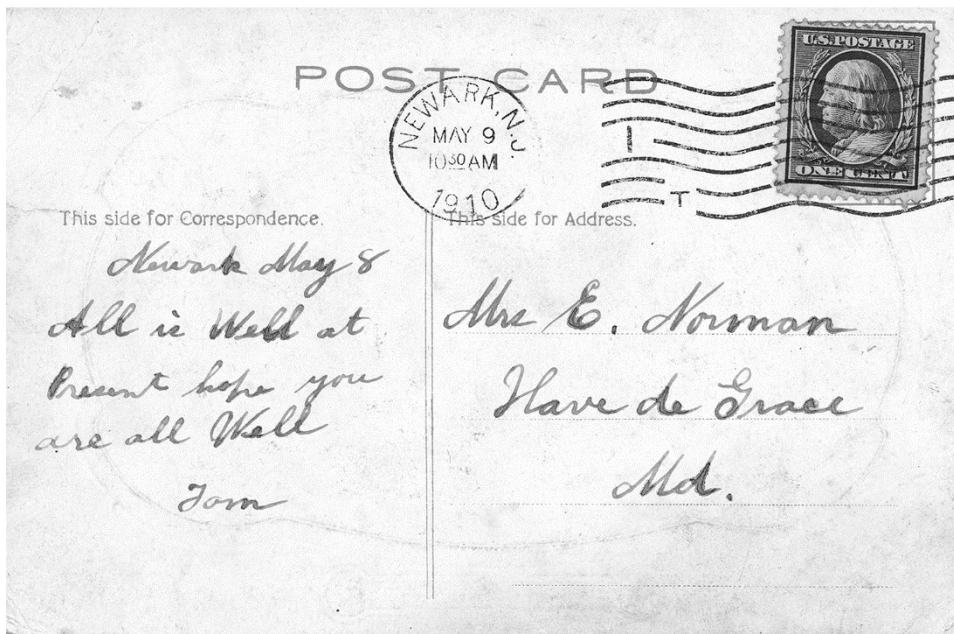 POST CARD
NEWARK, N.J.
MAY 9
10 30 AM
1910
1
T
U.S. POSTAGE
ONE CENT
This side for Correspondence.
Newark May 8
All is Well at
Present hope you
are all Well
Tom
This side for Address.
Mrs E. Norman
Have de Grace
Md.